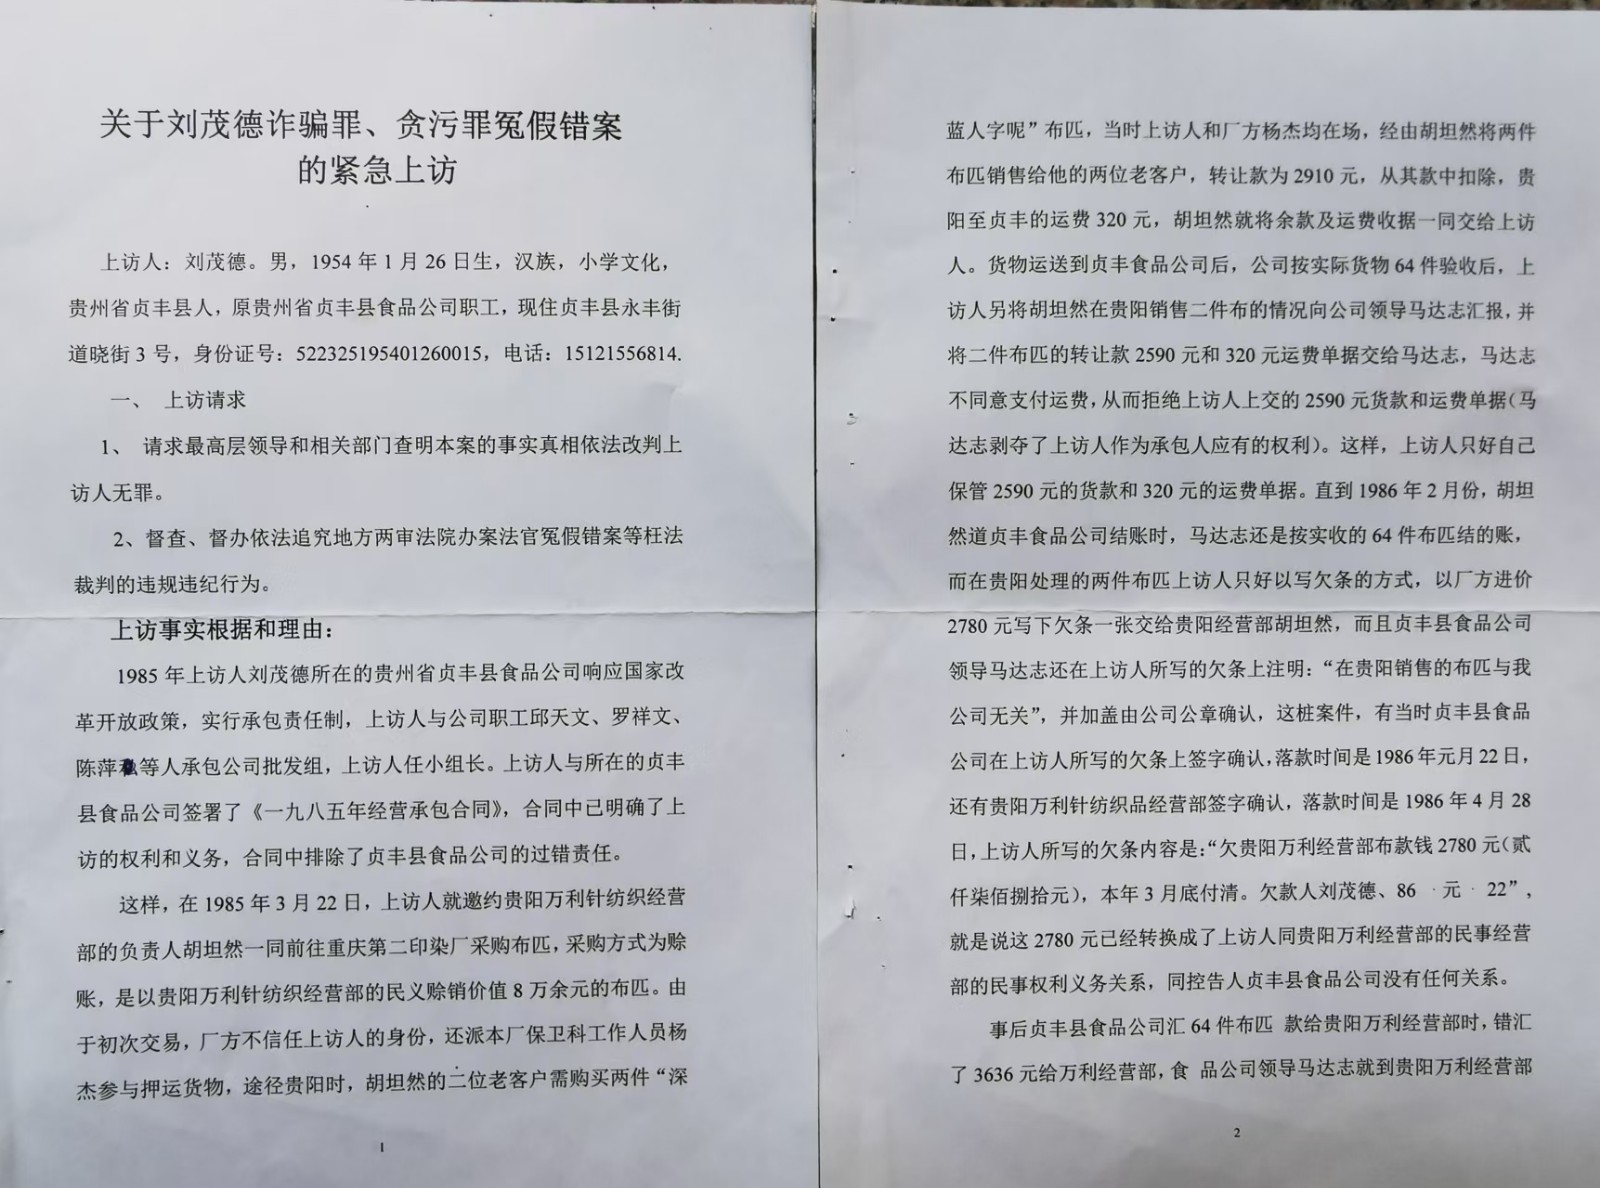 关于刘茂德诈骗罪、贪污罪冤假错案
的紧急上访
上访人：刘茂德。男，1954 年 1 月 26 日生，汉族，小学文化，
贵州省贞丰县人，原贵州省贞丰县食品公司职工，现住贞丰县永丰街
道晓街 3 号，身份证号：522325195401260015，电话：15121556814.
一、 上访请求
1、 请求最高层领导和相关部门查明本案的事实真相依法改判上
访人无罪。
2、督查、督办依法追究地方两审法院办案法官冤假错案等枉法
裁判的违规违纪行为。
上访事实根据和理由：
1985 年上访人刘茂德所在的贵州省贞丰县食品公司响应国家改
革开放政策，实行承包责任制，上访人与公司职工邱天文、罗祥文、
陈萍等人承包公司批发组，上访人任小组长。上访人与所在的贞丰
县食品公司签署了《一九八五年经营承包合同》，合同中已明确了上
访的权利和义务，合同中排除了贞丰县食品公司的过错责任。
这样，在 1985 年 3 月 22 日，上访人就邀约贵阳万利针纺织经营
部的负责人胡坦然一同前往重庆第二印染厂采购布匹，采购方式为赊
账，是以贵阳万利针纺织经营部的民义赊销价值 8 万余元的布匹。由
于初次交易，厂方不信任上访人的身份，还派本厂保卫科工作人员杨
杰参与押运货物，途径贵阳时，胡坦然的二位老客户需购买两件“深
1
蓝人字呢”布匹，当时上访人和厂方杨杰均在场，经由胡坦然将两件
布匹销售给他的两位老客户，转让款为 2910 元，从其款中扣除，贵
阳至贞丰的运费 320 元，胡坦然就将余款及运费收据一同交给上访
人。货物运送到贞丰食品公司后，公司按实际货物 64 件验收后，上
访人另将胡坦然在贵阳销售二件布的情况向公司领导马达志汇报，并
将二件布匹的转让款 2590 元和 320 元运费单据交给马达志，马达志
不同意支付运费，从而拒绝上访人上交的 2590 元货款和运费单据（马
达志剥夺了上访人作为承包人应有的权利）。这样，上访人只好自己
保管 2590 元的货款和 320 元的运费单据。直到 1986 年 2 月份，胡坦
然道贞丰食品公司结账时，马达志还是按实收的 64 件布匹结的账，
而在贵阳处理的两件布匹上访人只好以写欠条的方式，以厂方进价
2780 元写下欠条一张交给贵阳经营部胡坦然，而且贞丰县食品公司
领导马达志还在上访人所写的欠条上注明：“在贵阳销售的布匹与我
公司无关”，并加盖由公司公章确认，这桩案件，有当时贞丰县食品
公司在上访人所写的欠条上签字确认，落款时间是 1986 年元月 22 日，
还有贵阳万利针纺织品经营部签字确认，落款时间是 1986 年 4 月 28
日，上访人所写的欠条内容是：“欠贵阳万利经营部布款钱 2780 元（贰
仟柒佰捌拾元），本年 3 月底付清。欠款人刘茂德、86 · 元 · 22”，
就是说这 2780 元已经转换成了上访人同贵阳万利经营部的民事经营
部的民事权利义务关系，同控告人贞丰县食品公司没有任何关系。
事后贞丰县食品公司汇 64 件布匹 款给贵阳万利经营部时，错汇
了 3636 元给万利经营部，食 品公司领导马达志就到贵阳万利经营部
2